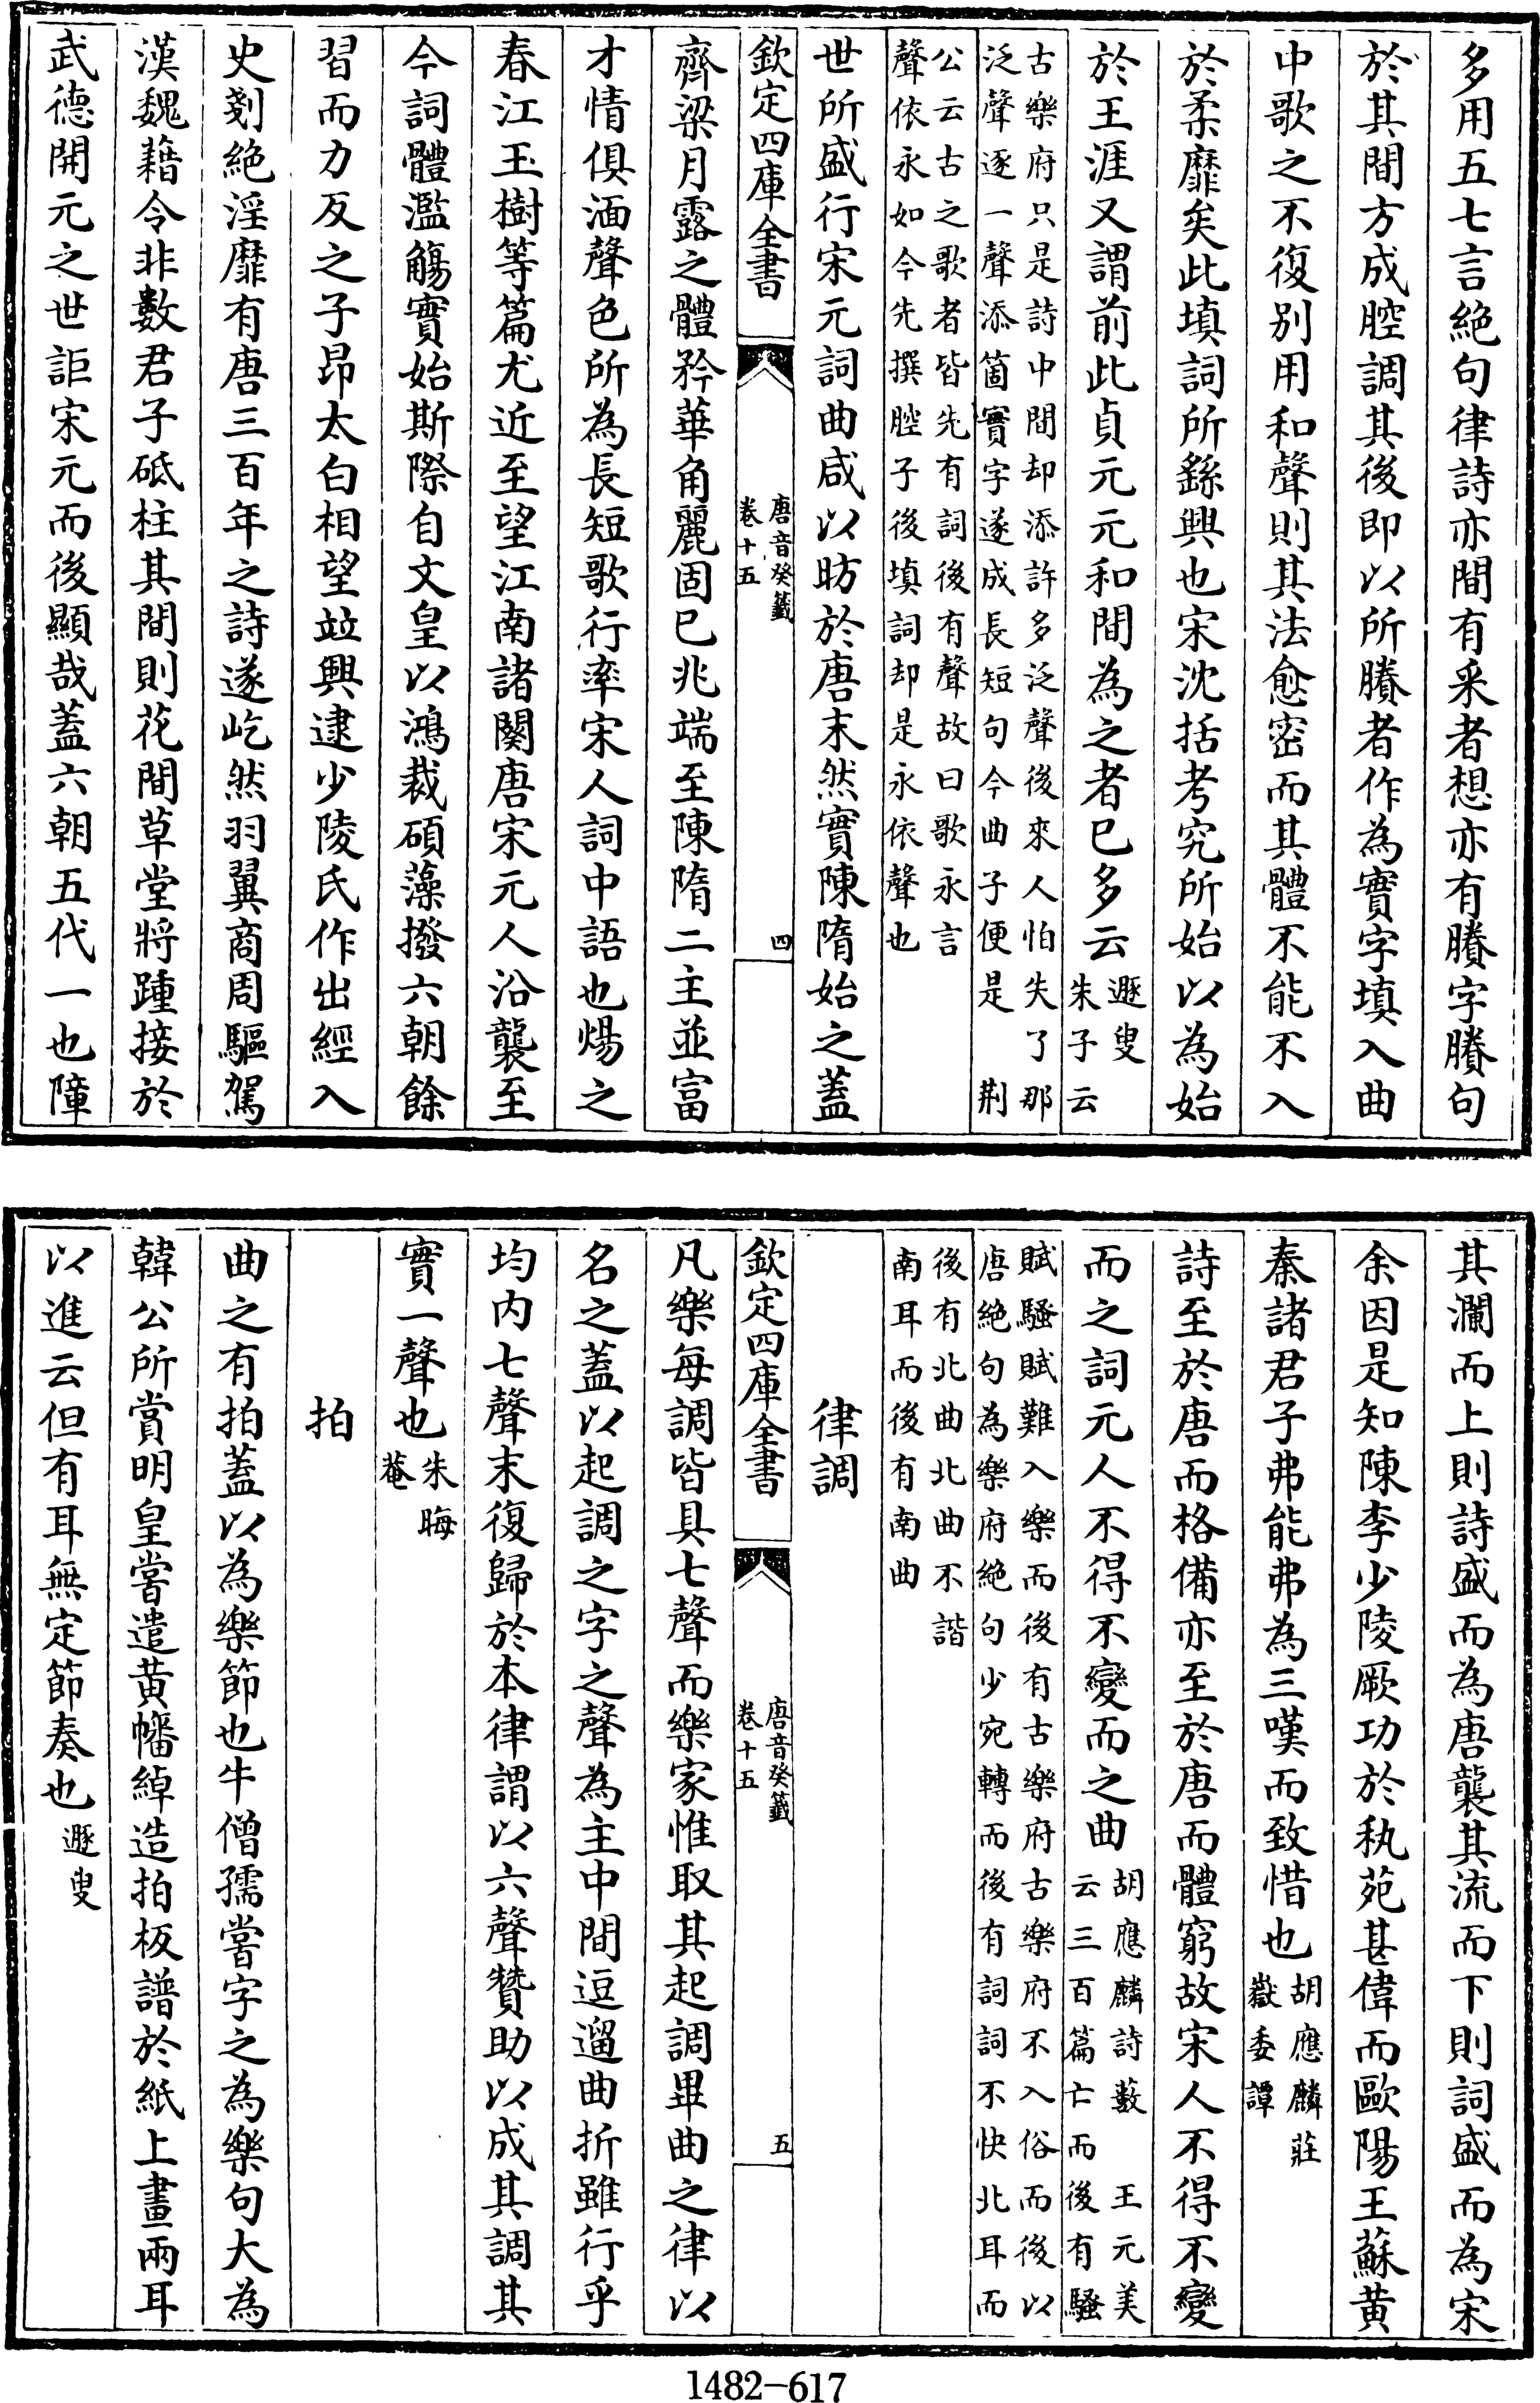 多用五七言絶句律詩亦間有采者想亦有賸字賸句
於其間方成腔調其後即以所賸者作為實字填入曲
中歌之不復别用和聲則其法愈密而其體不能不入
於柔靡矣此填詞所繇興也宋沈括考究所始以為始
於王涯又謂前此貞元元和間為之者已多云
遯叟
朱子云
古樂府只是詩中間却添許多泛聲後來人怕失了那
泛聲逐一聲添箇實字遂成長短句今曲子便是　荆
公云古之歌者皆先有詞後有聲故曰歌永言
聲依永如今先撰腔子後填詞却是永依聲也
世所盛行宋元詞曲咸以昉於唐末然實陳隋始之蓋
欽定四庫全書
唐音癸籖
卷十五
四
齊梁月露之體矜華角麗固已兆端至陳隋二主並富
才情俱湎聲色所為長短歌行率宋人詞中語也煬之
春江玉樹等篇尤近至望江南諸闋唐宋元人沿襲至
今詞體濫觴實始斯際自文皇以鴻裁碩藻撥六朝餘
習而力反之子昂太白相望竝興逮少陵氏作出經入
史剗絶淫靡有唐三百年之詩遂屹然羽翼商周驅駕
漢魏藉令非數君子砥柱其間則花間草堂將踵接於
武德開元之世詎宋元而後顯哉蓋六朝五代一也障
其瀾而上則詩盛而為唐襲其流而下則詞盛而為宋
余因是知陳李少陵厥功於秇苑甚偉而歐陽王蘇黄
秦諸君子弗能弗為三嘆而致惜也
胡應麟莊
嶽委譚
詩至於唐而格備亦至於唐而體窮故宋人不得不變
而之詞元人不得不變而之曲
胡應麟詩藪　王元美
云三百篇亡而後有騷
賦騷賦難入樂而後有古樂府古樂府不入俗而後以
唐絶句為樂府絶句少宛轉而後有詞詞不快北耳而
後有北曲北曲不諧
南耳而後有南曲
律調
欽定四庫全書
唐音癸籖
卷十五
五
凡樂每調皆具七聲而樂家惟取其起調畢曲之律以
名之蓋以起調之字之聲為主中間逗遛曲折雖行乎
均内七聲末復歸於本律謂以六聲贊助以成其調其
實一聲也
朱晦
菴
拍
曲之有拍蓋以為樂節也牛僧孺嘗字之為樂句大為
韓公所賞明皇嘗遣黄幡綽造拍板譜於紙上畫兩耳
以進云但有耳無定節奏也
遯叟
1482-617